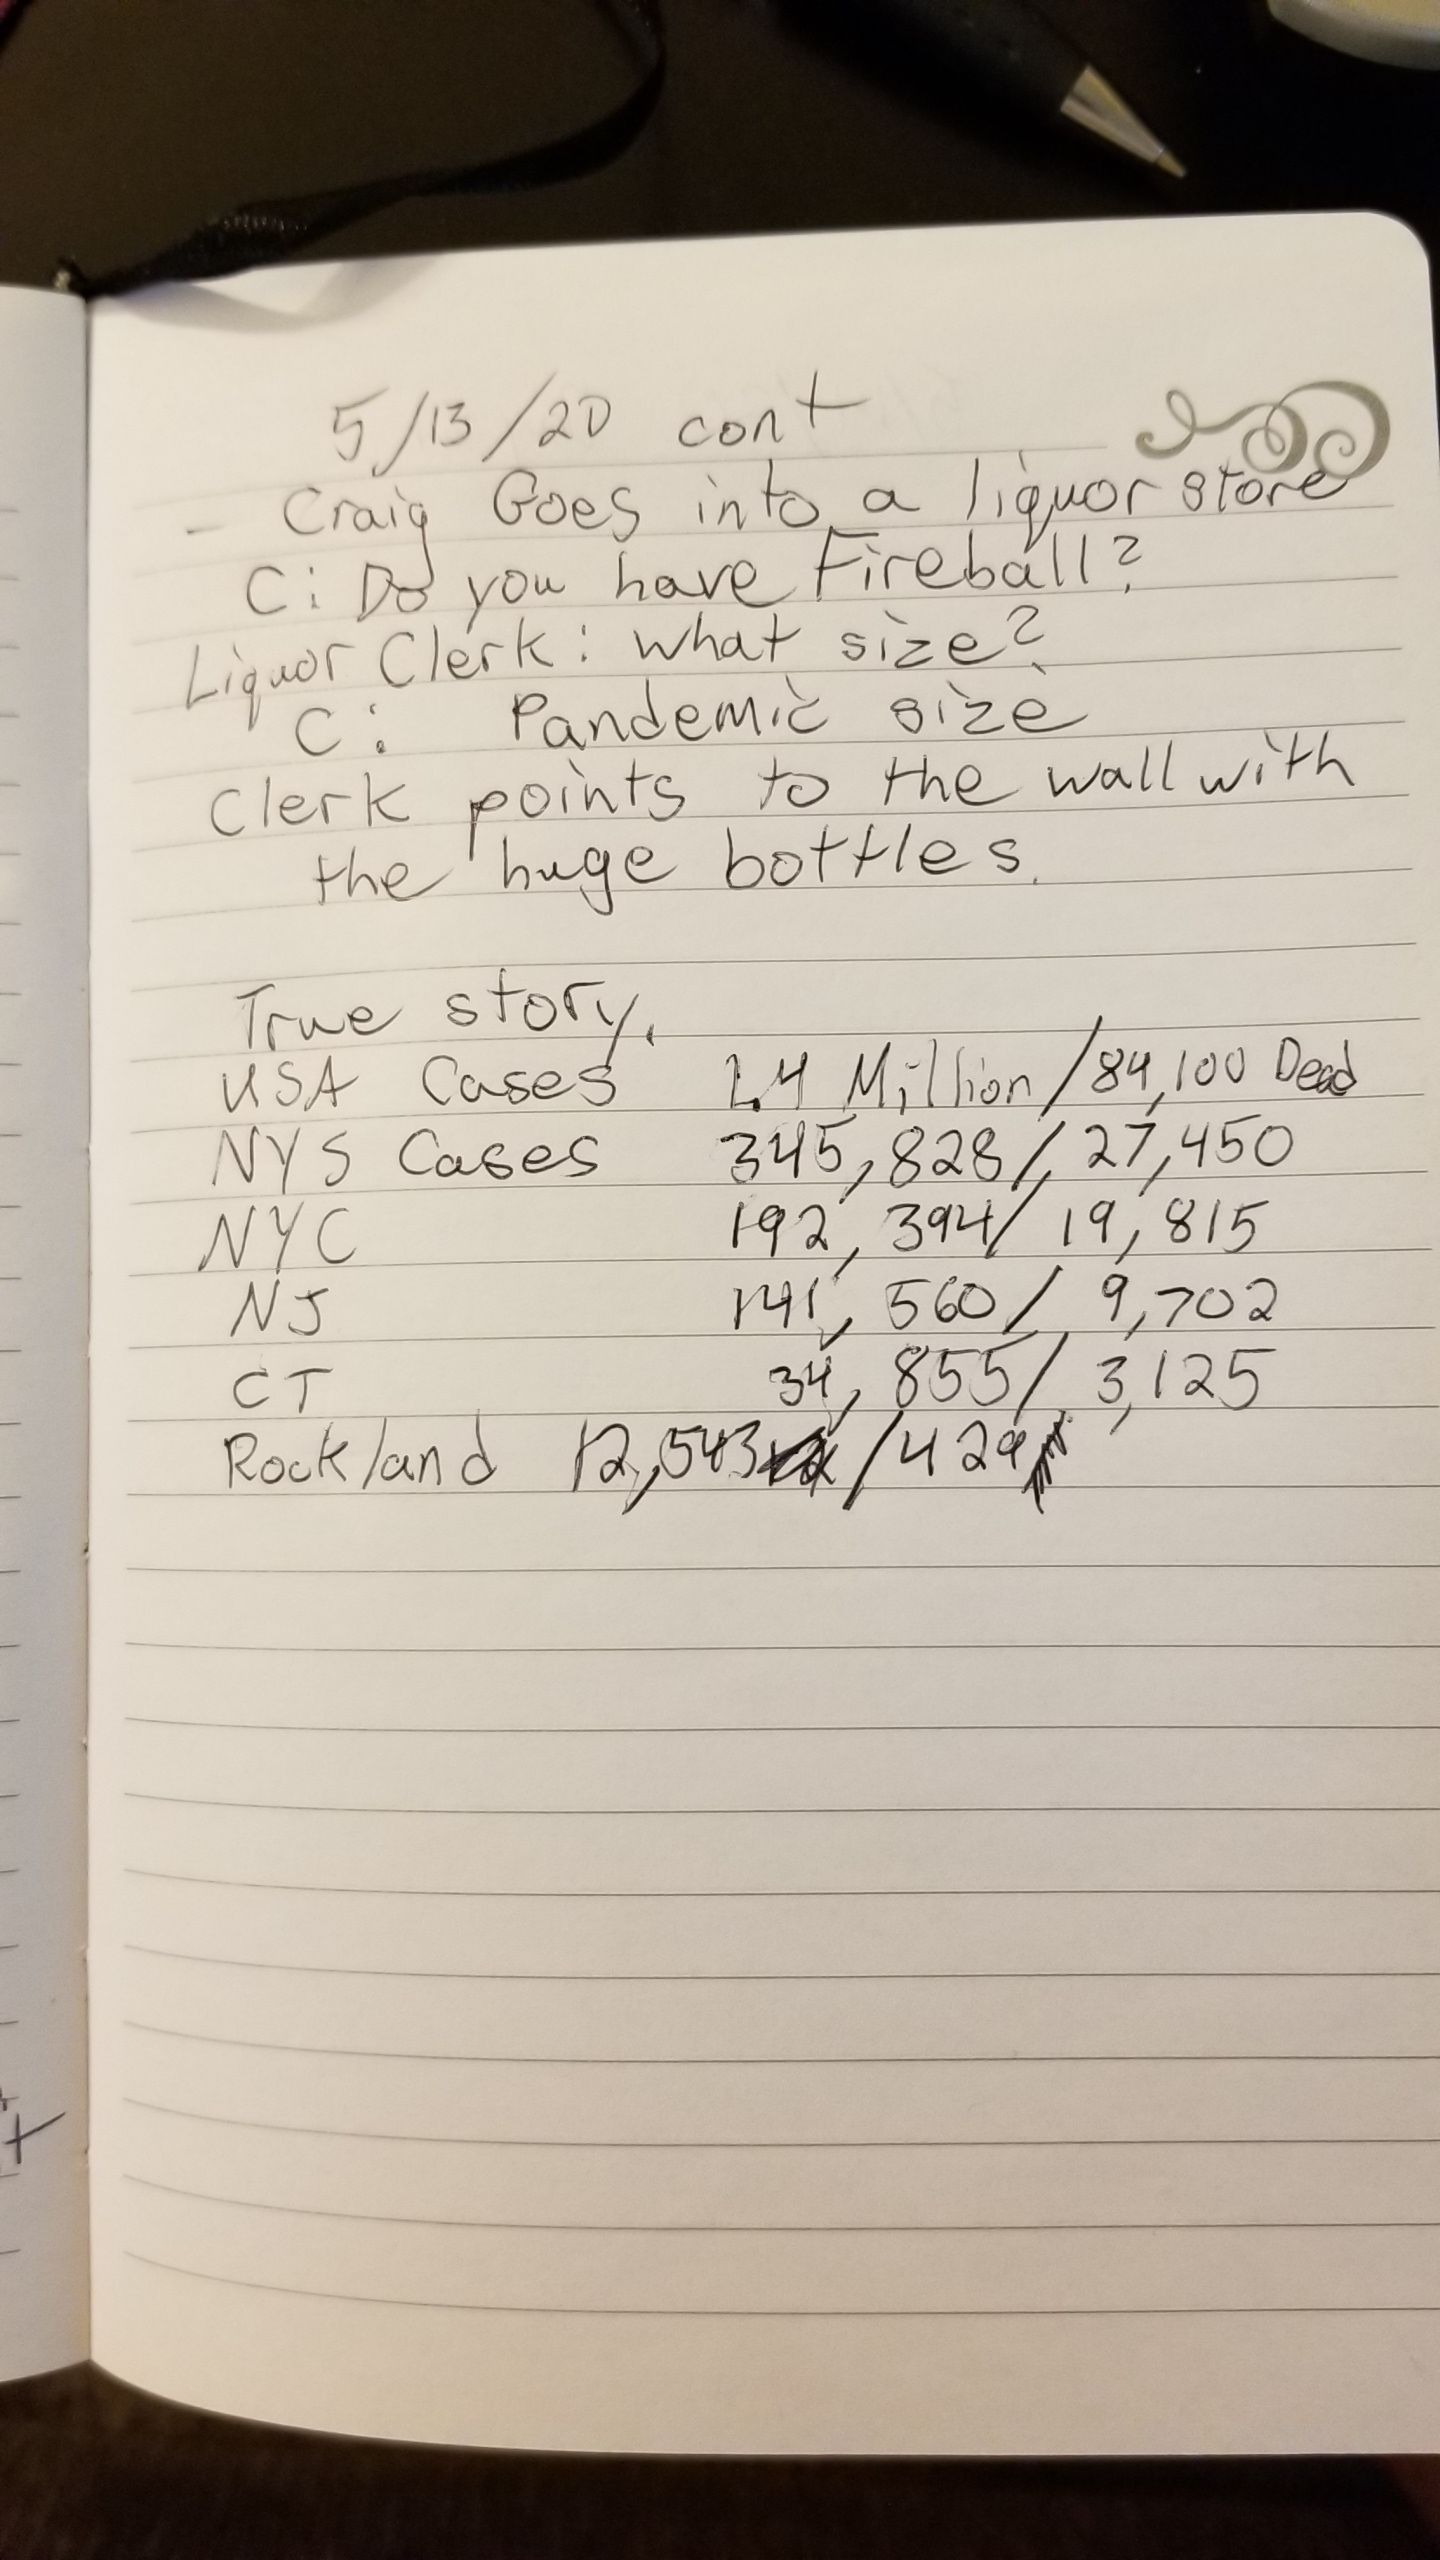 5/13/20 cont
- Craig Goes into a liquor store
C: Do you have Fireball?
Liquor Clerk: What size?
C: Pandemic size
Clerk points to the wall with
the huge bottles.
True story.
USA Cases 1.4 Million/84,100 Dead
NYS Cases 345,828/27,450
NYC 192,394/19,815
NJ 141,560/9,702
CT 34,855/3,125
Rockland 12,543/429